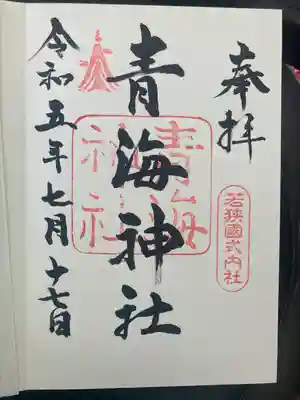 奉拝
若狭國式内社
青海神社
青海神社
令和五年七月十七日